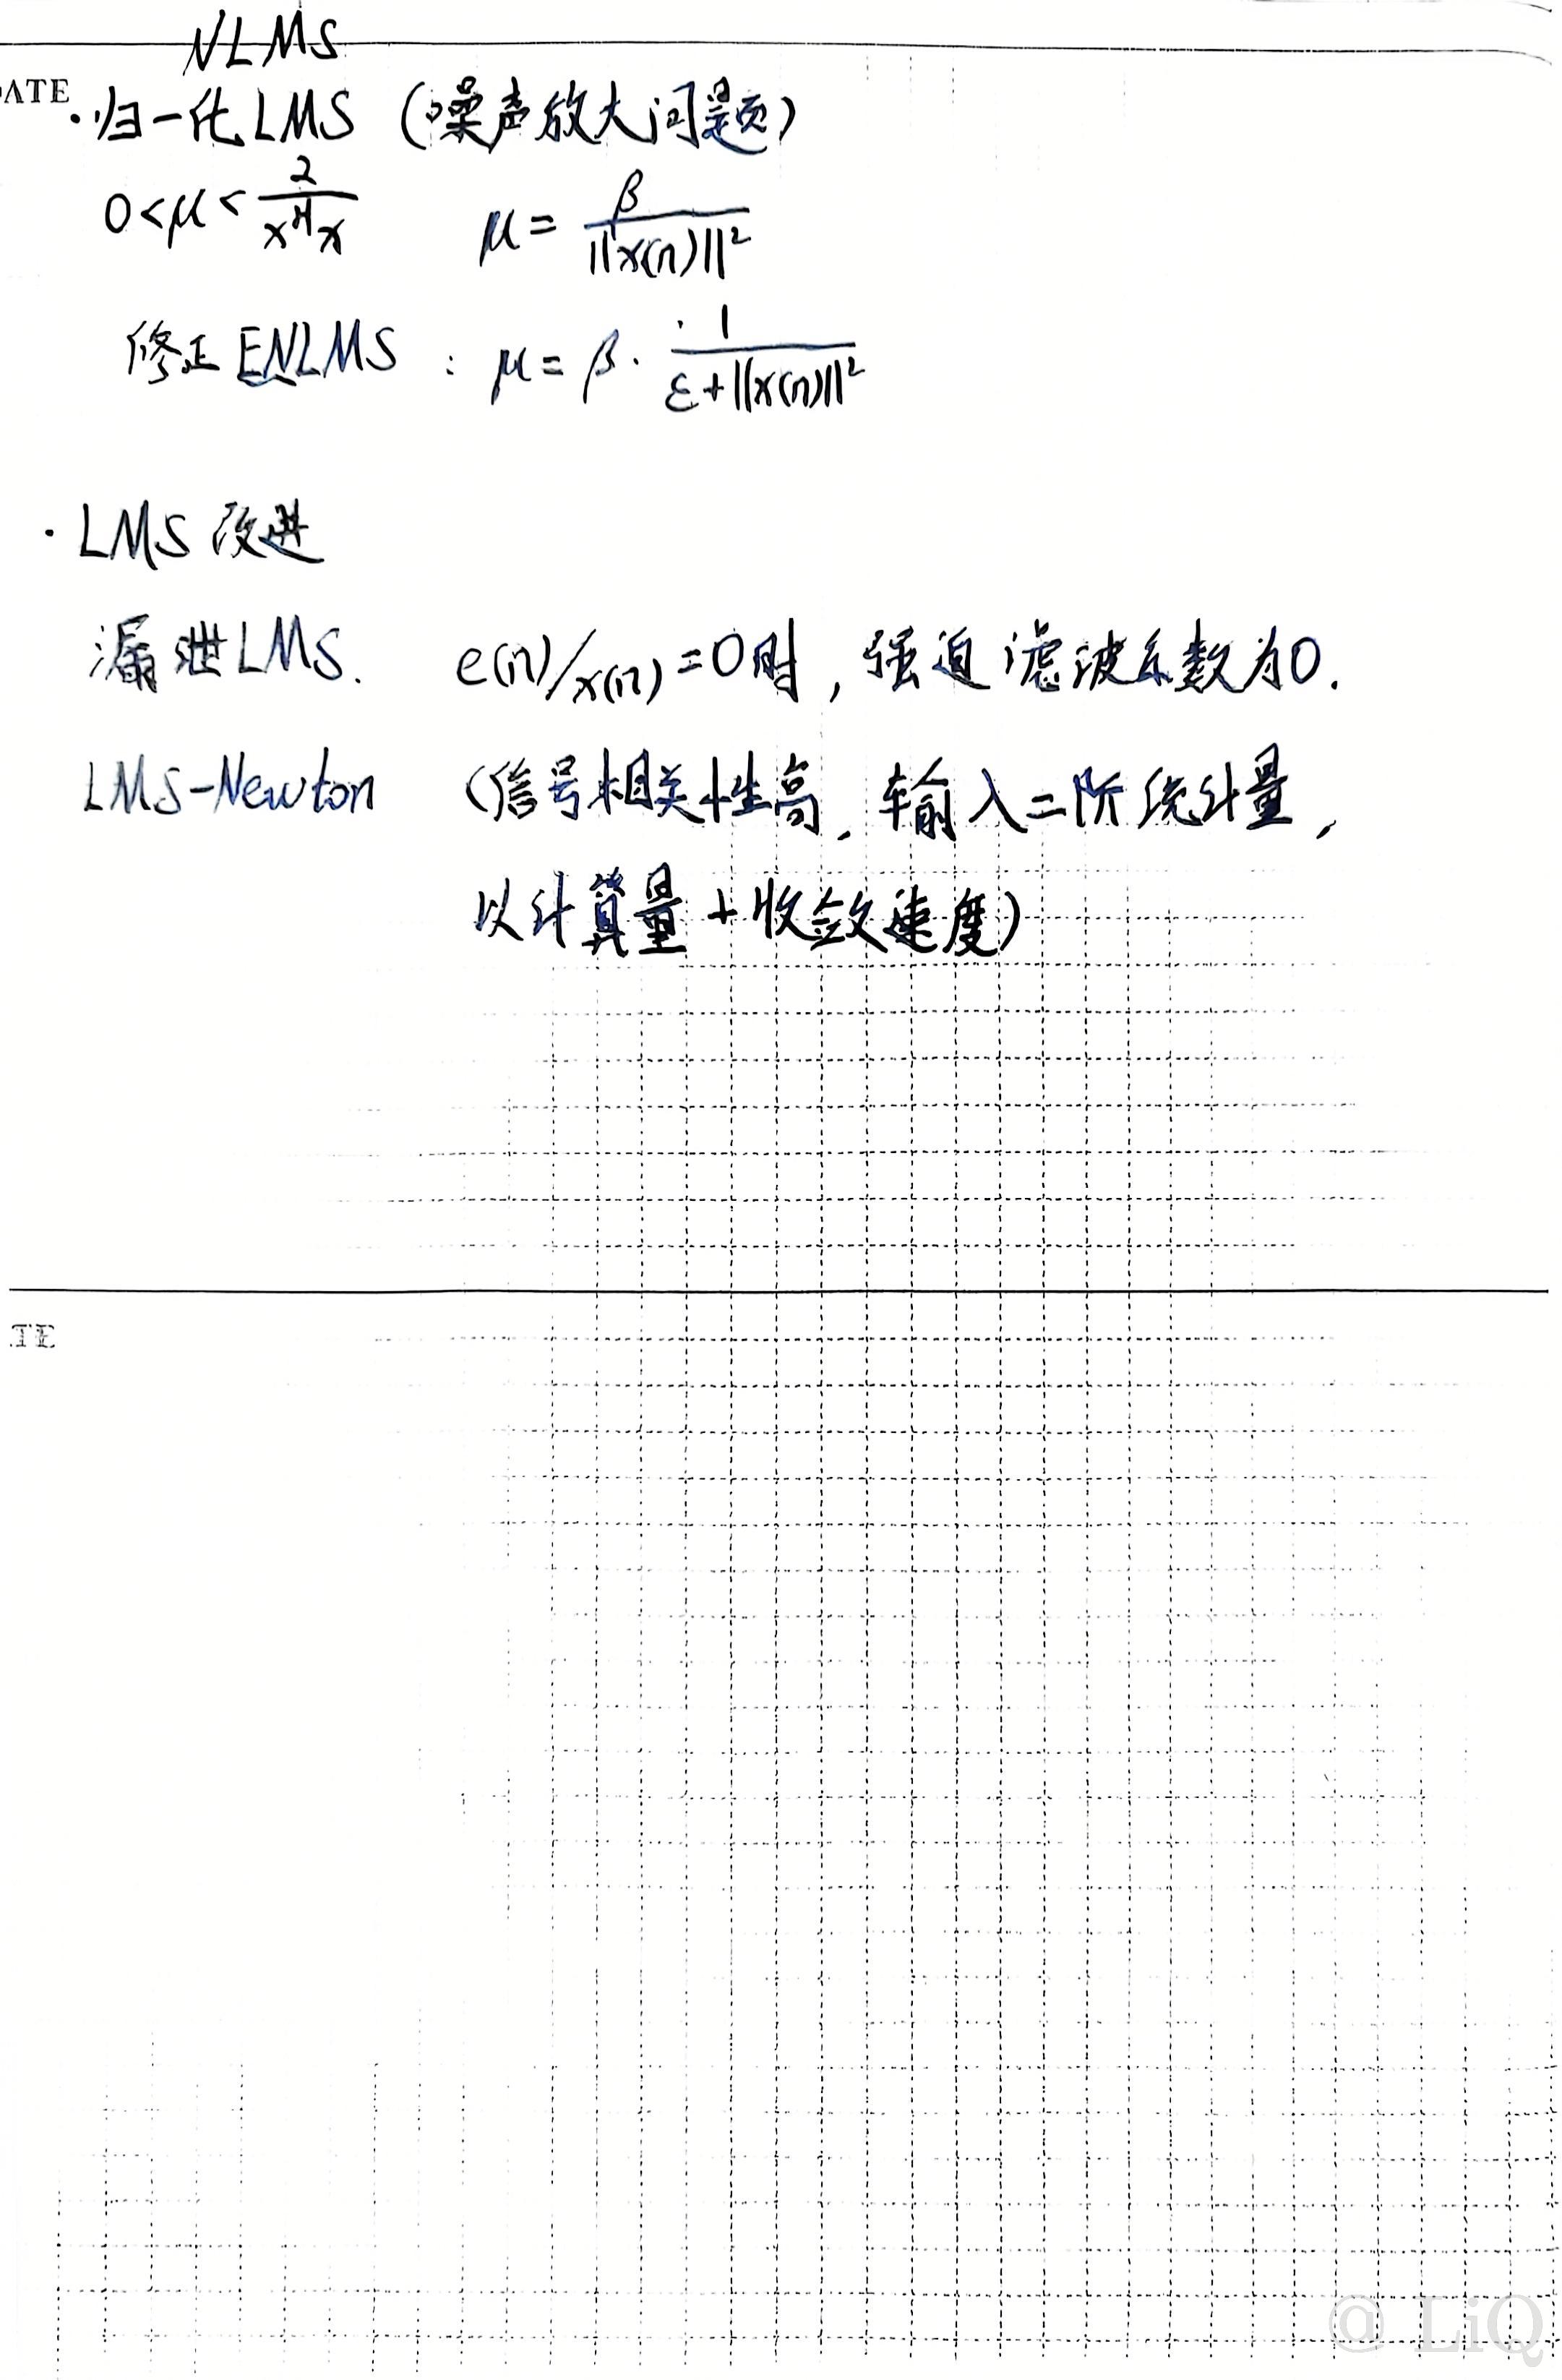 NLMS
DATE
·归一化LMS (噪声放大问题)
0<μ<2/(xᴴx)  μ=β/||x(n)||²
修正ENLMS : μ=β·1/(ε+||x(n)||²)
·LMS 改进
漏泄LMS. e(n)/x(n)=0时, 强迫滤波系数为0.
LMS-Newton (信号相关性高, 输入二阶统计量,
以计算量+收敛速度)
TE
@ LiQ